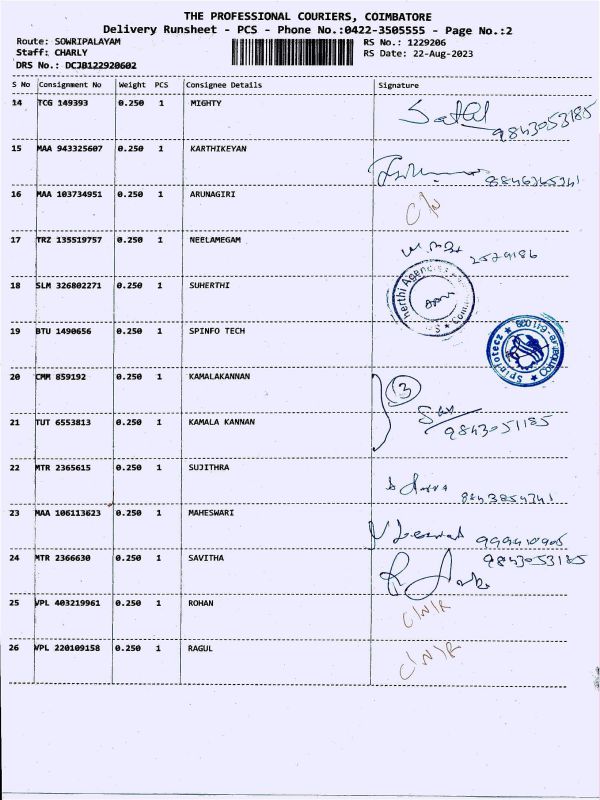 THE PROFESSIONAL COURIERS, COIMBATORE
Delivery Runsheet - PCS - Phone No.:0422-3505555 - Page No.:2
Route: SOWRIPALAYAM RS No.: 1229206
Staff: CHARLY RS Date: 22-Aug-2023
DRS No.: DCJB122920602
S No Consignment No Weight PCS Consignee Details Signature
14 TCG 149393 0.250 1 MIGHTY
9843053185
15 MAA 943325607 0.250 1 KARTHIKEYAN
16 MAA 103734951 0.250 1 ARUNAGIRI
17 TRZ 135519757 0.250 1 NEELAMEGAM
2579186
18 SLM 326802271 0.250 1 SUHERTHI
19 BTU 1490656 0.250 1 SPINFO TECH
20 CMM 859192 0.250 1 KAMALAKANNAN
3
21 TUT 6553813 0.250 1 KAMALA KANNAN
9843051185
22 MTR 2365615 0.250 1 SUJITHRA
23 MAA 106113623 0.250 1 MAHESWARI
24 MTR 2366630 0.250 1 SAVITHA
9843053185
25 VPL 403219961 0.250 1 ROHAN
C/N/R
26 VPL 220109158 0.250 1 RAGUL
C/N/R